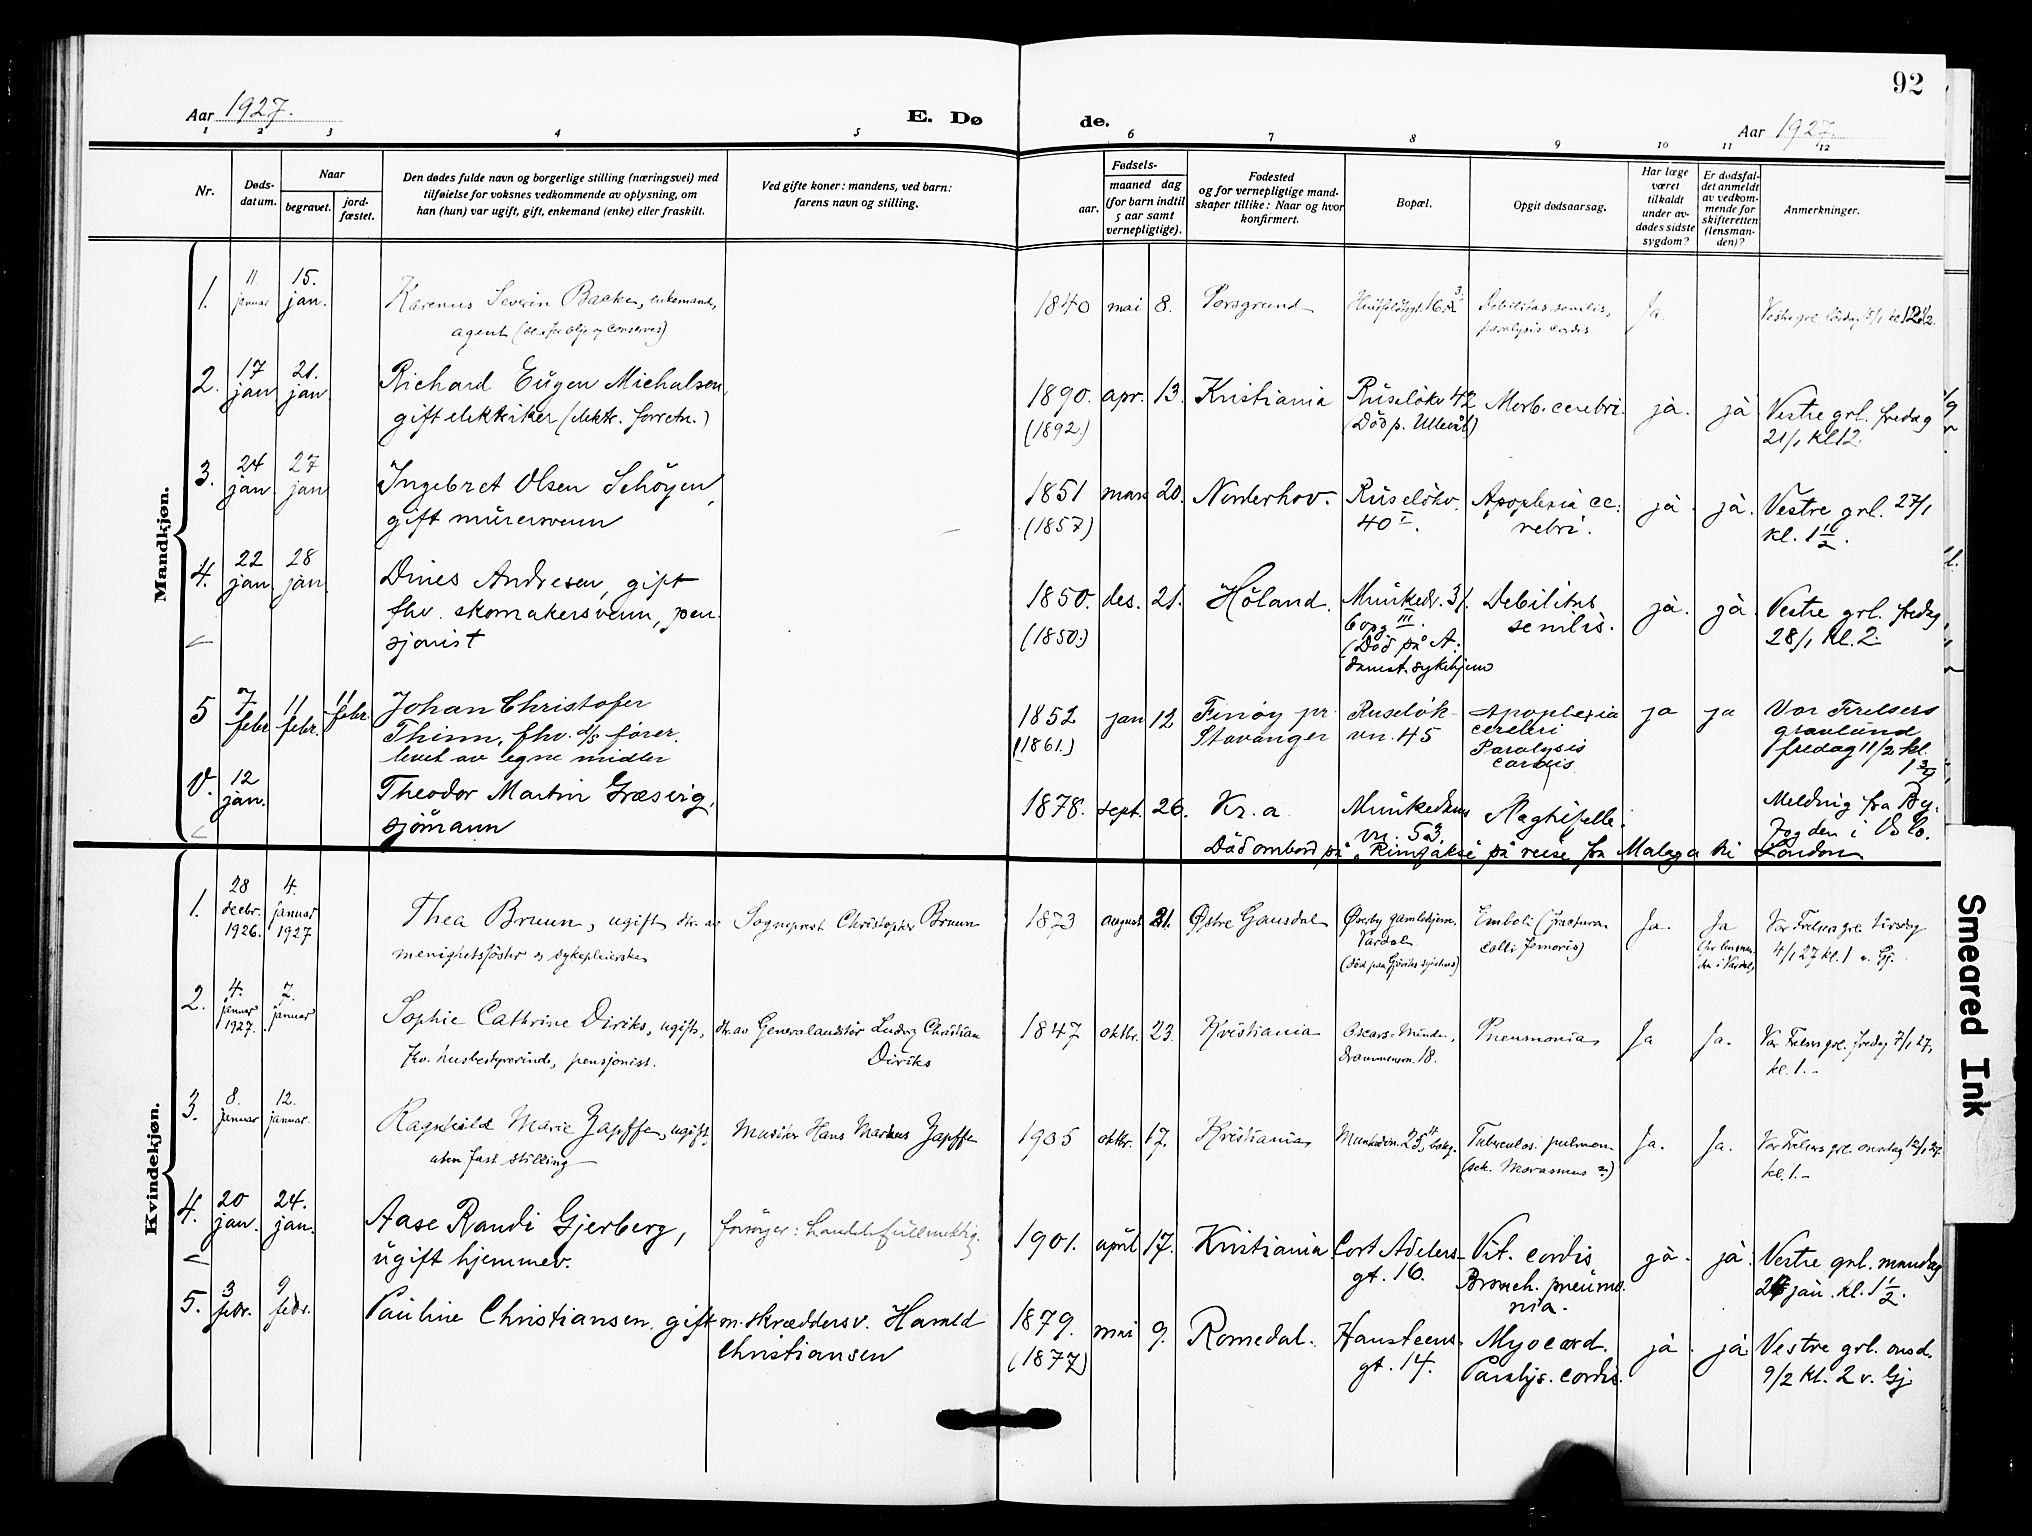 92
Aar 1927.
E. Dø
de.
Aar 1927.
1 2 3 4 5 6 7 8 9 10 11 12
Nr.
Døds-
datum.
Naar
begravet.
jord-
fæstet.
Den dødes fulde navn og borgerlige stilling (næringsvei) med
tilføielse for voksnes vedkommende av oplysning, om
han (hun) var ugift, gift, enkemand (enke) eller fraskilt.
Ved gifte koner: mandens, ved barn:
farens navn og stilling.
Fødsels-
aar.
maaned dag
(for barn indtil
5 aar samt
vernepligtige).
Fødested
og for vernepligtige mand-
skaper tillike: Naar og hvor
konfirmert.
Bopæl.
Opgit dødsaarsag.
Har læge
været
tilkaldt
under av-
dødes sidste
sygdom?
Er dødsfal-
det anmeldt
av vedkom-
mende for
skifteretten
(lensman-
den)?
Anmerkninger.
Mandkjøn.
1. 11 januar 15. jan.
Karenus Severin Backe, enkemand,
agent
1840 mai 8. Porsgrund
Debilitas senilis,
paralysis cordis
Ja.
2. 17 jan 21. jan
Richard Eugen Michalsen,
gift elektriker (elektr. forretn.)
1890. apr. 13. Kristiania
(1892.)
Ruseløkv 42
(Död p. Ullevål)
Morb. cerebri.
ja. ja
Vestre grl. fredag
21/1 kl 12.
3. 24 jan 27 jan
Ingebret Olsen Schöyen,
gift murersvenn
1851 mars 20. Norderhov.
(1857)
Ruselökv.
40 I.
Apoplexia ce-
rebri.
ja. ja.
Vestre grl. 27/1
kl. 1 1/2.
4. 22 jan 28 jan
Dines Andresen, gift
fhv. skomakersvenn, pen-
sjonist
1850. des. 21. Höland.
(1850.)
Munkedv. 31.
6 opg III.
(Död på A.
Debilitas
senilis.
ja. ja
Vestre grl. fredag
28/1 kl. 2.
5 7 febr 11 febr. 11 febr.
Johan Christofer
Thinn, fhv. d/s fører.
levet av egne midler
1852 jan 12 Finöy pr.
(1861.) Stavanger
Ruseløk-
vn. 45
Apoplexia
cerebri
Paralysis
cordis
ja ja
Vor Frelsers
gravlund
fredag 11/2 kl.
1 3/4
V. 12 jan.
Theodor Martin Græsvig,
sjömann
1878. sept. 26. Kr.a.
Munkedams
vn. 53
Meldning fra By-
fogden i Oslo.
Död ombord på "Rimfakse" på reise fra Malaga til London
Kvindekjøn.
1. 28 decbr. 1926. 4. januar 1927
Thea Bruun, ugift dtr. av
menighetssøster og sykepleierske
Sogneprest Christopher Bruun
1873 august 21. Østre Gausdal
Øverby gamlehjem.
Vardal
(død paa Gjøviks sykehus)
Emboli (fractura
colli femoris)
Ja. Ja
(for lensman-
den i Vardal)
Vor Frelsers grl. tirsdag
4/1 27 kl. 1 v. Gj.
2. 4. januar 1927. 7. januar
Sophie Cathrine Diriks, ugift,
fhv. husbestyrerinde, pensjonist.
dtr. av Generalauditør Ludvig Christian
Diriks
1847 oktbr. 23. Kristiania
Oscars Minde,
Drammensvn. 18.
Pneumonia
Ja Ja.
Vor Frelsers grl. fredag 7/1 27,
kl. 1.-
3. 8. januar 12. januar.
Ragnhild Marie Zapffe, ugift,
uten fast stilling
Musiker Hans Markus Zapffe
1905 oktbr. 17. Kristiania
Tuberculos. pulmon.
(sek. Marasmus)
Ja. Ja.
Vor Frelsers grl. onsdag 12/1 27
kl. 1.-
4. 20 jan. 24. jan.
Aase Randi Gjerberg,
ugift hjemmev.
forsörger: handelsfullmektig.
1901. april 17. Kristiania
Cort Adelers-
gt. 16.
Vit. cordis
Bronch. pneumo-
nia.
ja. ja
Vestre grl. mandag
24 jan. kl. 1 1/2.
5. 3 febr. 9 febr.
Pauline Christiansen, gift m. skræddersv. Harald
Christiansen
1879. mai 9. Romedal.
(1877)
Hansteens-
gt. 14.
Myocard.
Paralys. cordis.
ja. ja
Vestre grl. onsd.
9/2 kl. 2 v. Gj
Smeared Ink